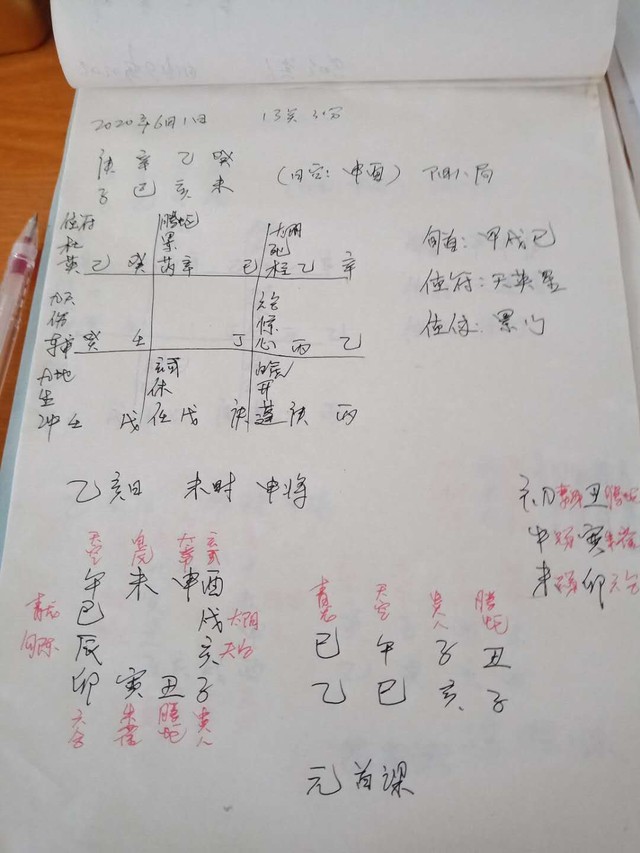 2020年6月1日 13点31分
庚 辛 乙 癸
子 巳 亥 未
(旬空: 申酉) 阴八局
值符
杜
英 乙 癸
螣蛇
景
芮 辛 己
太阴
死
柱 乙 辛
旬首: 甲戌己
值符: 天英星
值使: 景门
九天
伤
癸 壬
丁
六合
惊
心 丙 乙
九地
生
冲 壬 戊
玄武
休
任 戊 庚
白虎
开
蓬 庚 丙
乙亥日 未时 申将
初 丑 螣蛇
中 寅 朱雀
末 卯 六合
天空 白虎 太常 玄武
午 未 申 酉
青龙 巳 戌 太阴
勾陈 辰 亥
卯 寅 丑 子
六合 朱雀 螣蛇 贵人
青龙 天空 贵人 螣蛇
巳 午 子 丑
乙 巳 亥 子
元首课